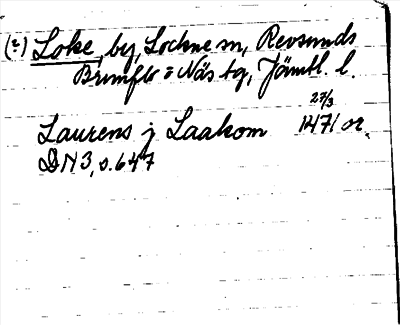 (?) Loke, by, Lockne sn, Revsunds
Brunflo o Näs tg, Jämtl. l.
27/3
Laurens j Laakom 1471 or.
DN 3, s. 647